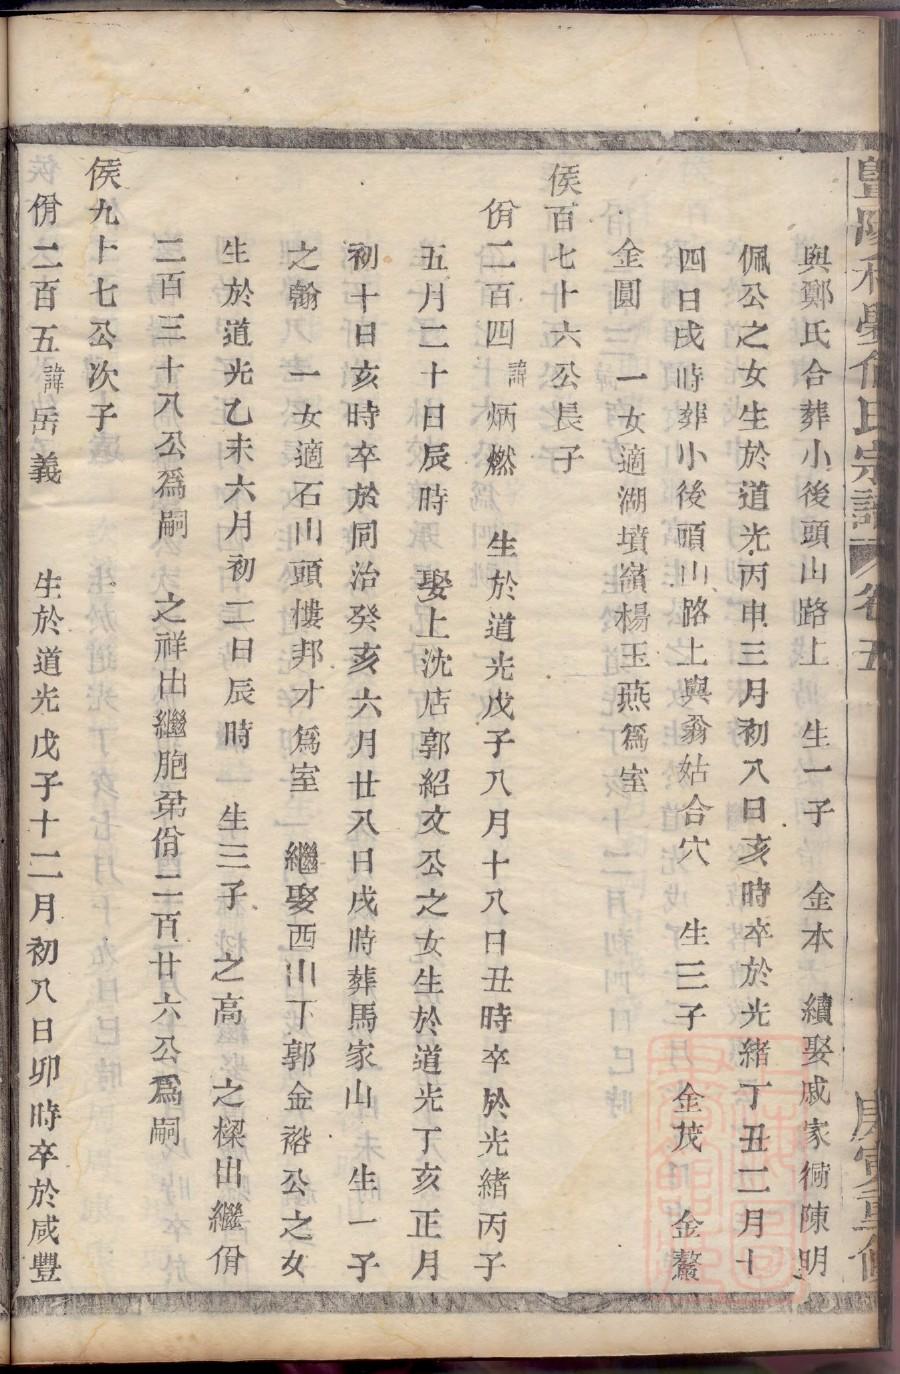 暨陽 宗譜 卷五 庚寅重修
與鄭氏合葬小後頭山路上 生一子 金本 續娶戚家衖陳明
佩公之女生於道光丙申三月初八日亥時卒於光緒丁丑二月十
四日戌時葬小後頭山路上與翁姑合穴 生三子 金茂 金鰲
金圓 一女適湖墳嶺楊玉燕爲室
侯百七十六公長子
佾二百四 諱炳燃 生於道光戊子八月十八日丑時卒於光緒丙子
五月二十日辰時 娶上沈店郭紹文公之女生於道光丁亥正月
初十日亥時卒於同治癸亥六月廿八日戌時葬馬家山 生一子
之翰 一女適石山頭樓邦才爲室 繼娶西山下郭金裕公之女
生於道光乙未六月初二日辰時 生三子 之高 之樑出繼佾
二百三十八公爲嗣 之祥出繼胞弟佾二百廿六公爲嗣
侯九十七公次子
佾二百五 諱岳義 生於道光戊子十二月初八日卯時卒於咸豐